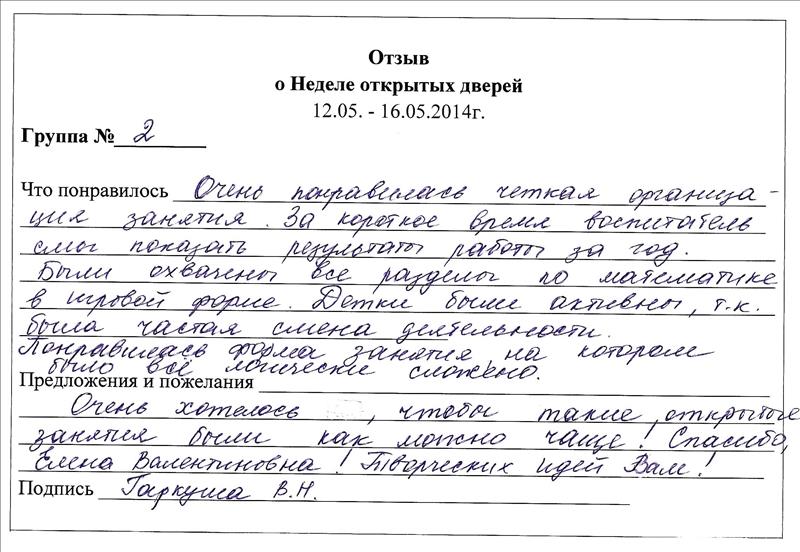 Отзыв
о Неделе открытых дверей
12.05. - 16.05.2014г.
Группа № 2
Что понравилось Очень понравилась четкая организа-
ция занятия. За короткое время воспитатель
смог показать результаты работы за год.
Были охвачены все разделы по математике
в игровой форме. Детки были активны, т.к.
была частая смена деятельности.
Понравилась форма занятия, на котором
было всё логически сложено.
Предложения и пожелания
Очень хотелось , чтобы такие открытые
занятия были как можно чаще! Спасибо,
Елена Валентиновна! Творческих идей Вам!
Подпись Гаркуша В.Н.